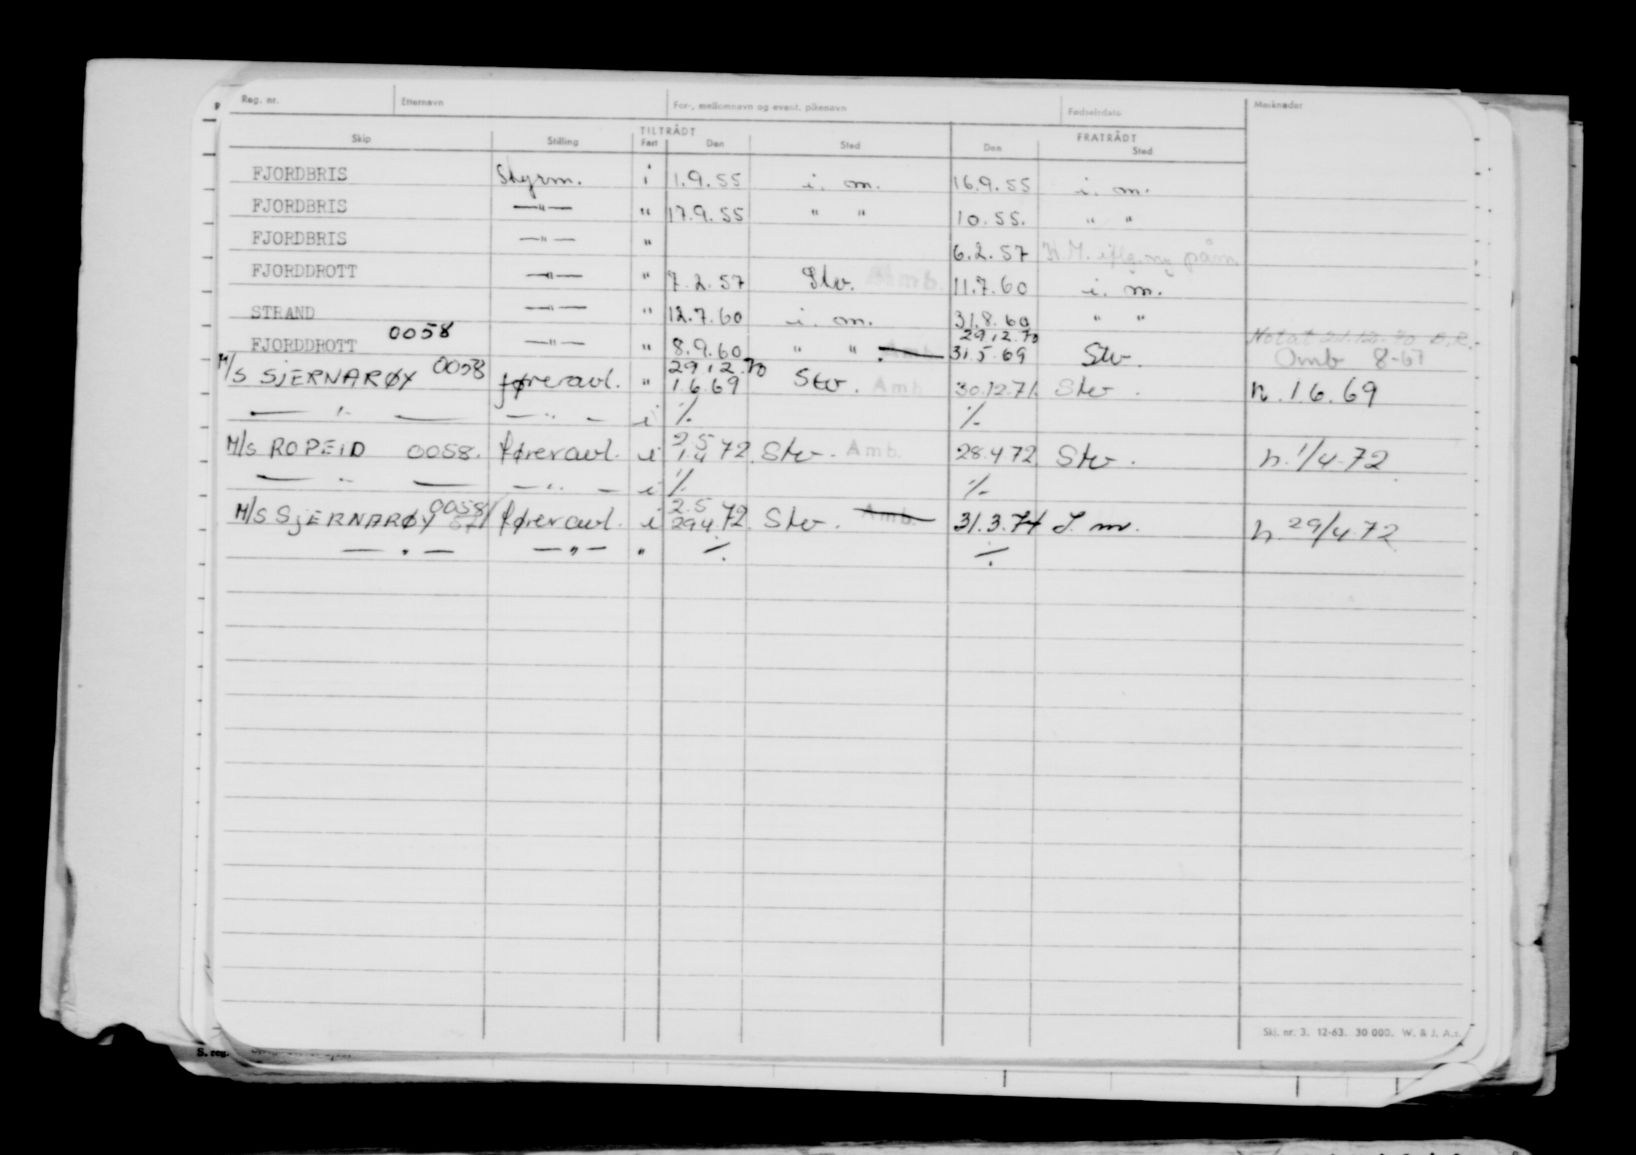 Reg. nr. Etternavn For-, mellomnavn og event. pikenavn Fødselsdato Merknader
TILTRÅDT FRATRÅDT
Skip Stilling Fart Den Sted Den Sted
FJORDBRIS Styrm. i 1.9.55 i. m. 16.9.55 i. m.
FJORDBRIS —"— " 17.9.55 " " 10.55. " "
FJORDBRIS —"— " 6.2.57
FJORDDROTT —"— " 7.2.57 Stv. Amb. 11.7.60 i. m.
STRAND —"— " 12.7.60 i. m. 31.8.60 " "
0058 29.12.70 Notat
FJORDDROTT —"— " 8.9.60 " " Amb. 31.5.69 Stv. Omb 8-67
29.12.70
M/S SJERNARØY 0058 føreravl. " 1.6.69 Stv. Amb. 30.12.71. Stv. n. 1.6.69
— " — — " — i ⁒ ⁒
2.5
M/S ROPEID 0058. Føreravl. i 1.4 72 Stv. Amb. 28.4 72 Stv. n. 1/4-72
— " — — " — i ⁒ ⁒
0058 2.5
M/S SJERNARØY Føreravl. i 29.4.72 Stv. Amb. 31.3.74 I. m. n. 29/4.72
— " — — " — " ⁒ ⁒
Skj. nr. 3. 12-63. 30 000. W. & J. A.s.
S. reg.